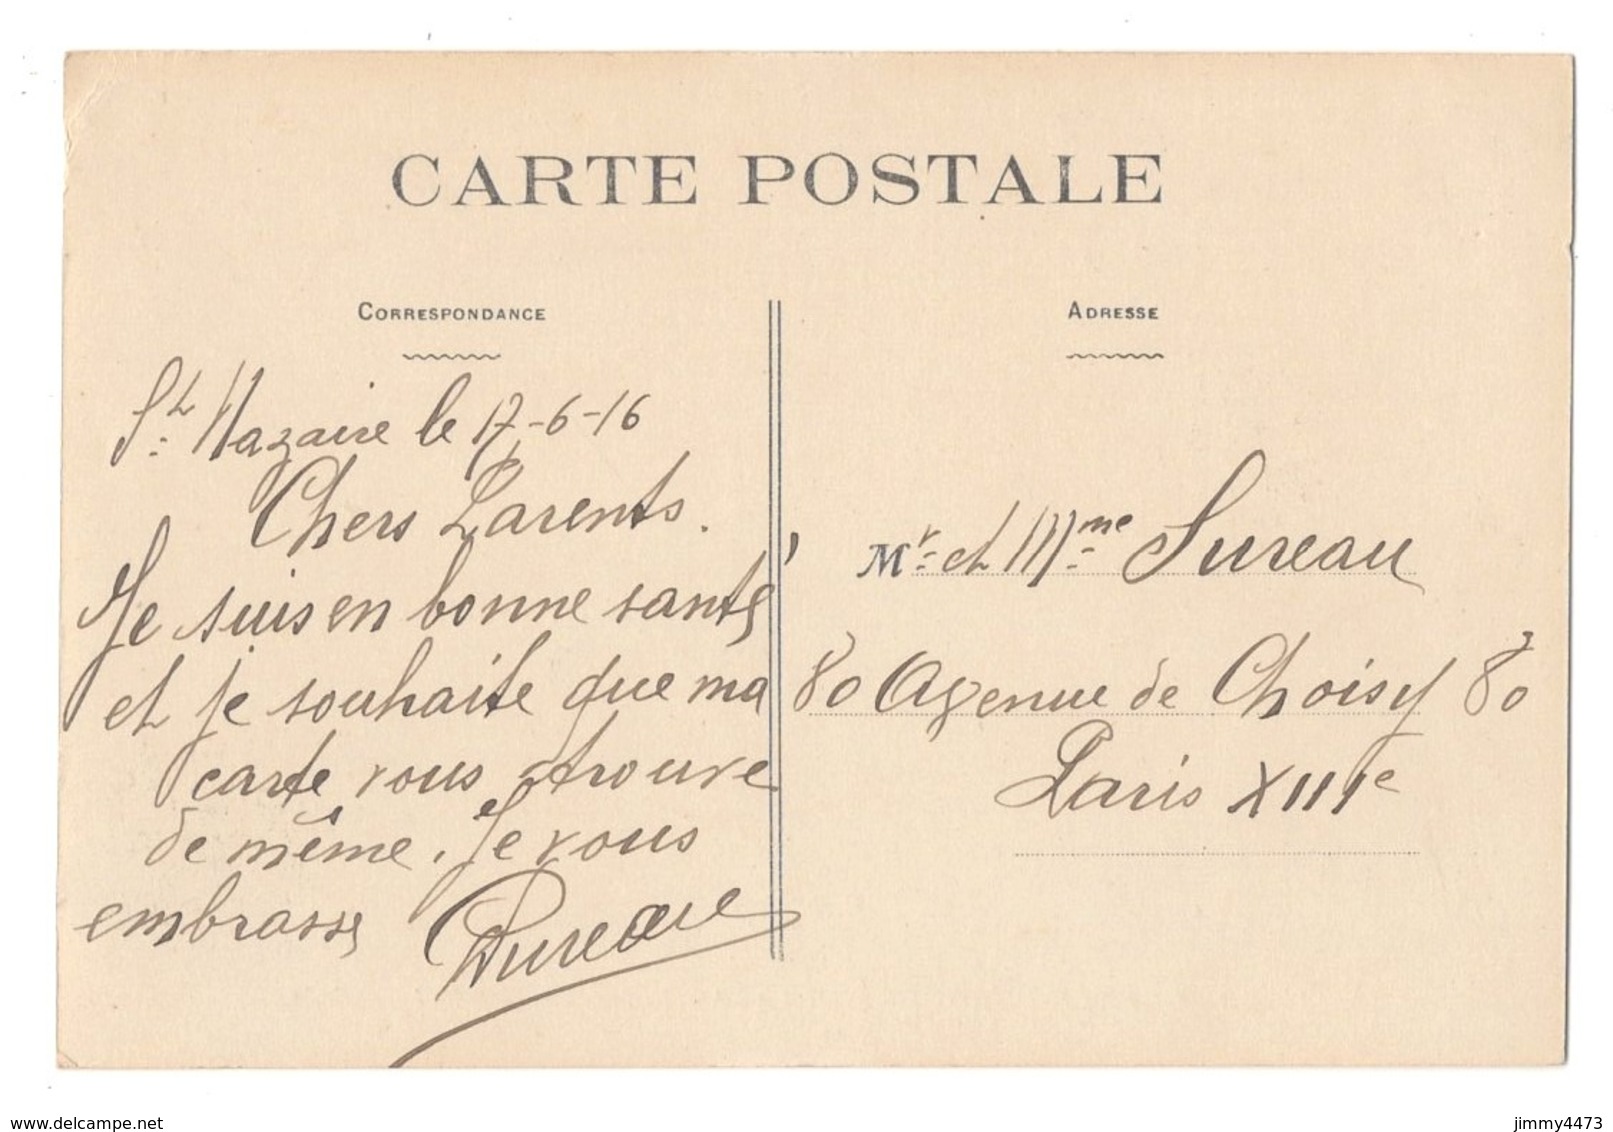 CARTE POSTALE
CORRESPONDANCE
St. Nazaire le 17-6-16
Chers Parents.
Je suis en bonne santé
et je souhaite que ma
carte vous trouve
de même. Je vous
embrasse
ADRESSE
Mr. et Mme Sureau
80 Avenue de Choisy 80
Paris XIIIe
www.delcampe.net
jimmy4473